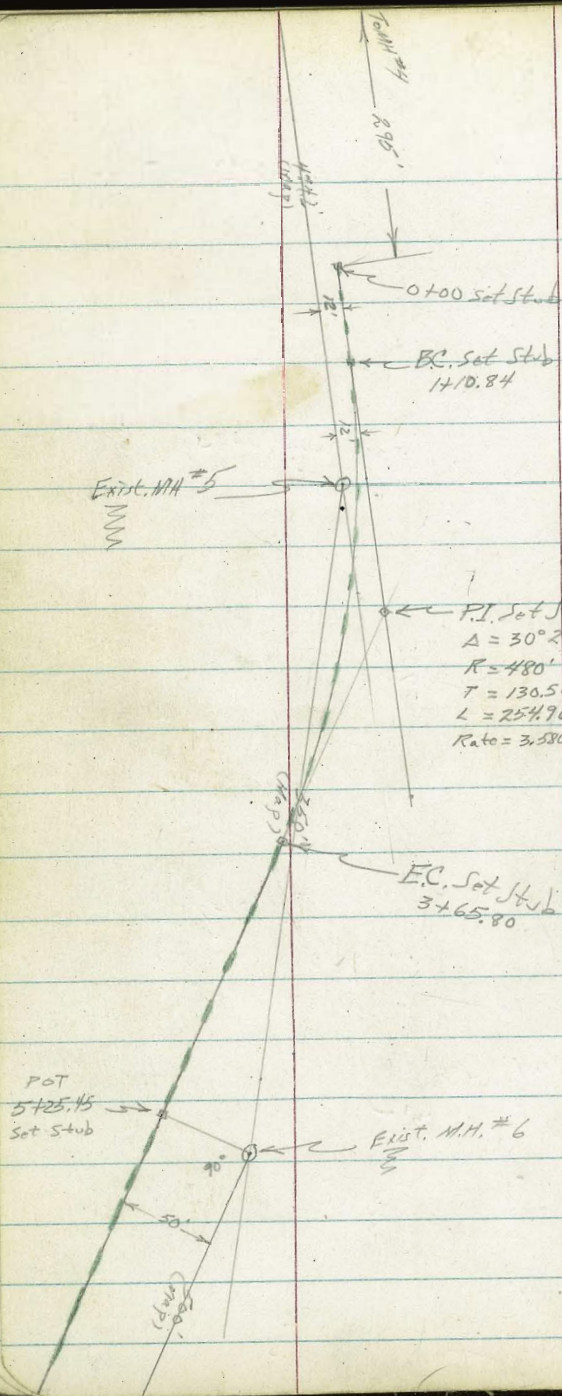 To MH #4
295'
(Map)
0+00 Set Stub
12'
B.C. Set Stub
1+10.84
12'
Exist. MH #5
P.I. Set S
Δ = 30°2
R = 480'
T = 130.5
L = 254.96
Rate = 3.580
250'
(Map)
E.C. Set Stub
3+65.80
POT
5+25.45
Set Stub
Exist. M.H. #6
90°
50'
500'
(Map)